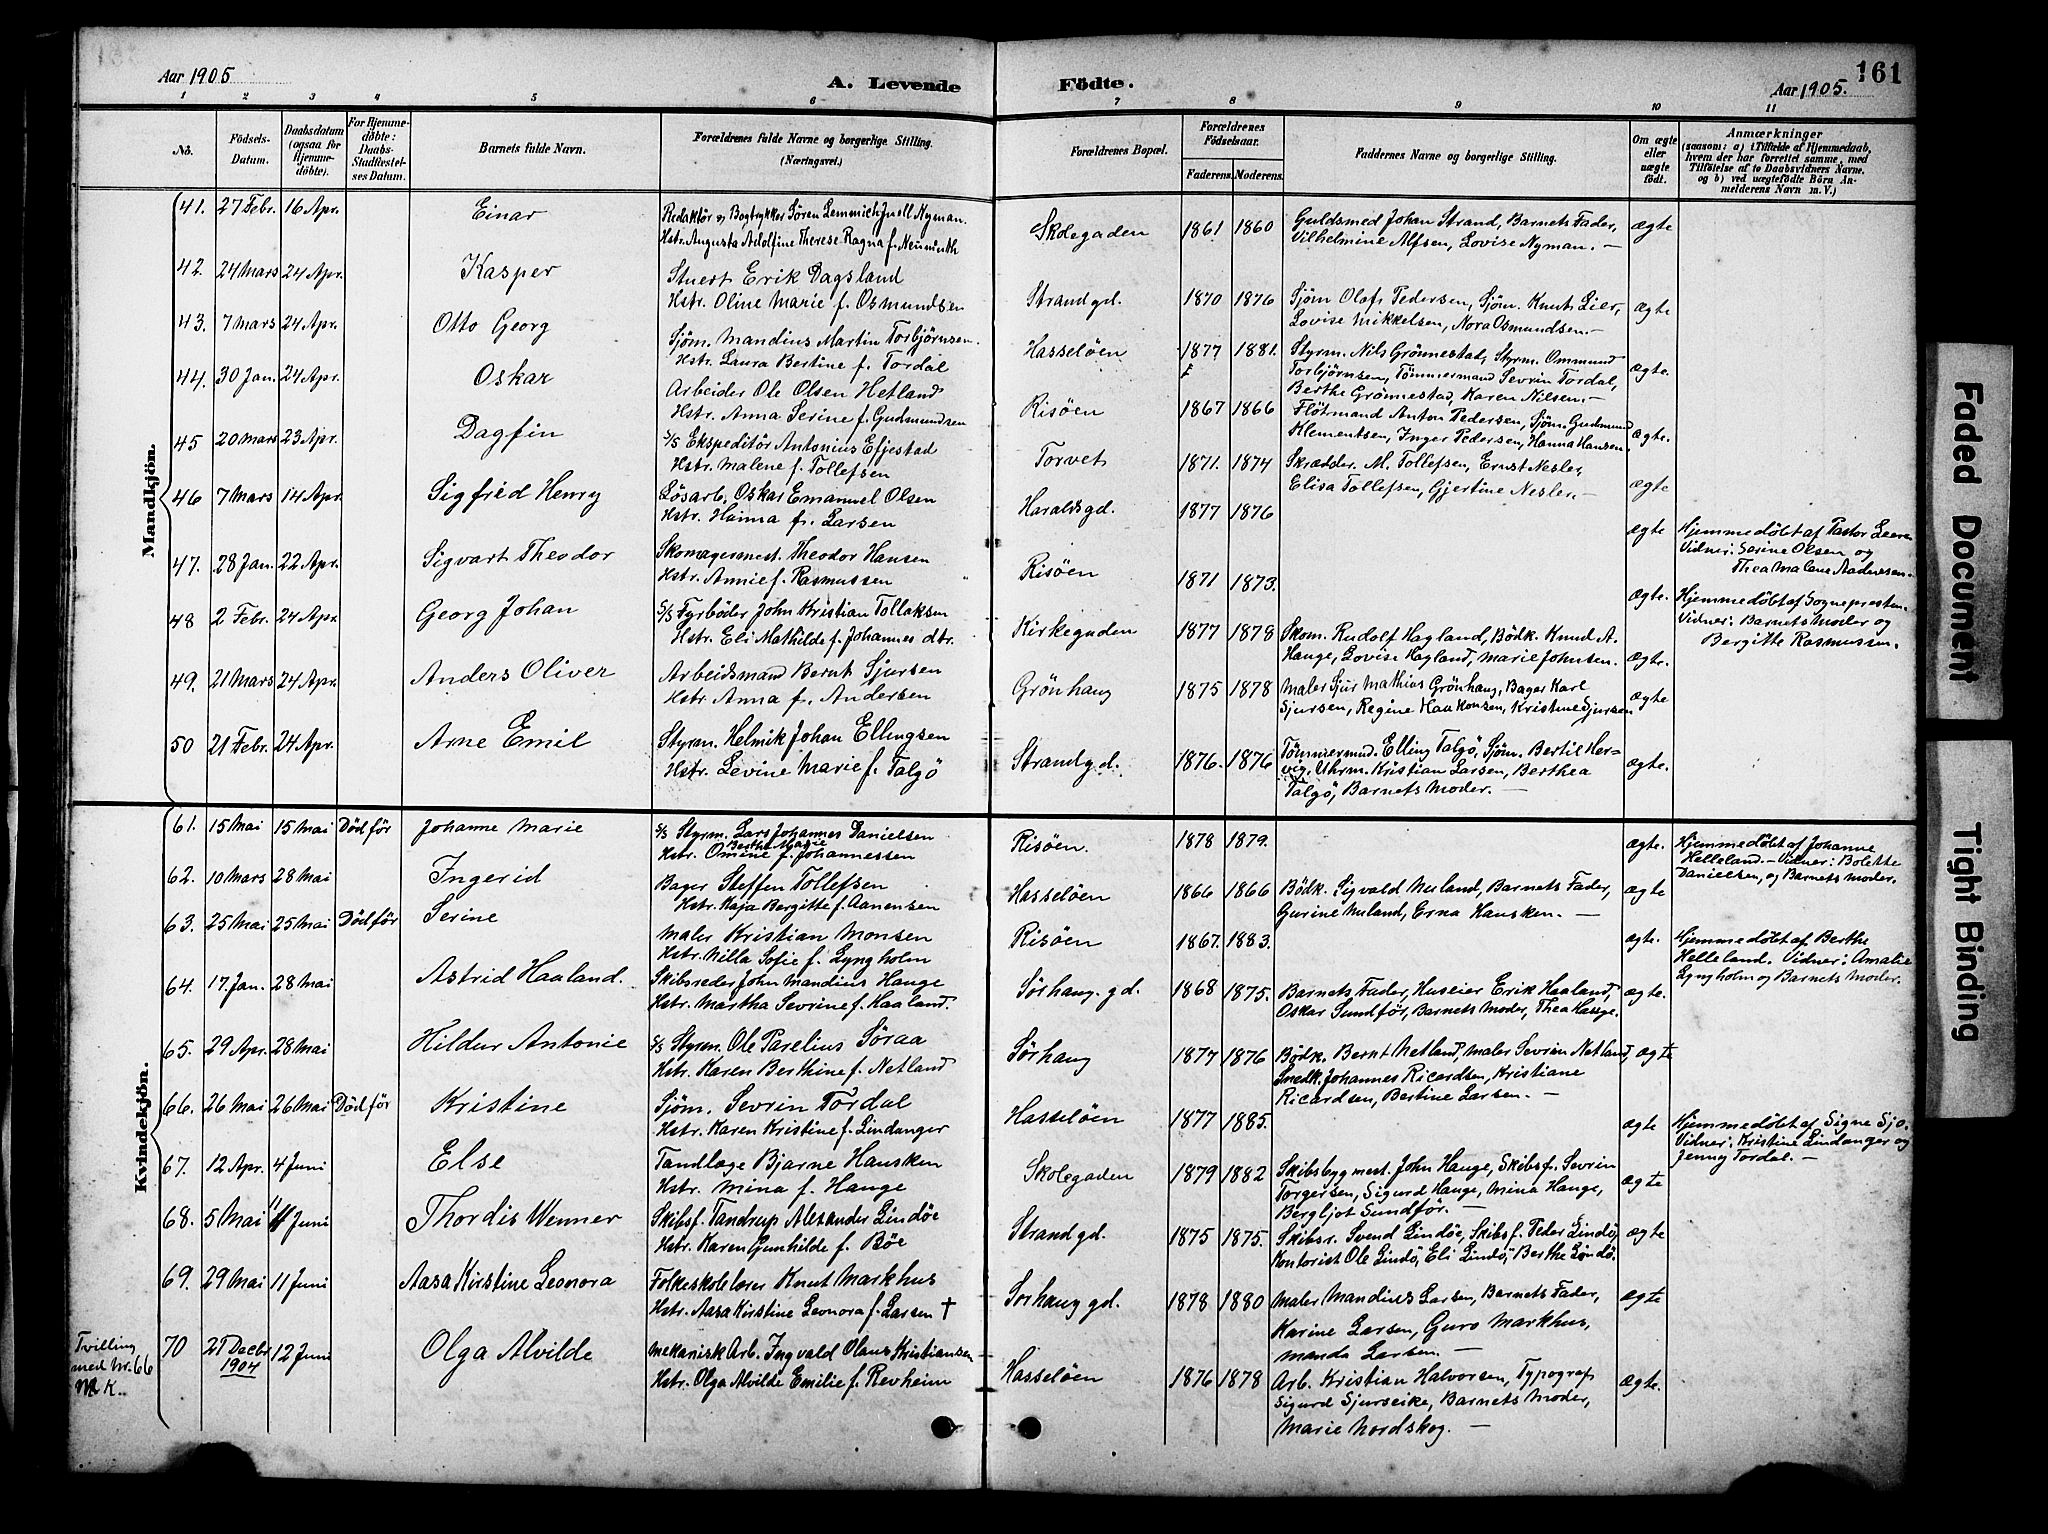 Aar 1905
A. Levende Födte.
Aar 1905.
161
1 2 3 4 5 6 7 8 9 10 11
No. Födsels-Datum. Daabsdatum (ogsaa for Hjemme-döbte). For Hjemme-döbte: Daabs-Stadfæstel-ses Datum. Barnets fulde Navn. Forældrenes fulde Navne og borgerlige Stilling. (Næringsvei.) Forældrenes Bopæl. Forældrenes Födselsaar. Faderens. Moderens. Faddernes Navne og borgerlige Stilling. Om ægte eller uægte födt. Anmærkninger (saasom: a) i Tilfælde af Hjemmedaab, hvem der har forrettet samme, med Tilföielse af to Daabsvidners Navne, og b) ved uægtefödte Börn An-melderens Navn m. V.)
Mandkjön.
41. 27 Febr. 16 Apr. Einar Redaktör og Bogtrykker Sören Lemmich Juell Nyman.
Hstr. Augusta Adolfine Therese Ragna f. Neumuth
Skolegaden 1861 1860 Guldsmed Johan Strand, Barnets Fader,
Vilhelmine Alfsen, Lovise Nyman. — ægte
42. 24 Mars 24 Apr. Kasper Stuert Erik Dagsland
Hstr. Oline Marie f. Osmundsen
Strandgd. 1870 1876 Sjöm. Olaf Pedersen, Sjöm. Knut Lier,
Lovise Mikkelsen, Nora Osmundsen. — ægte
43. 7 Mars 24 Apr. Otto Georg Sjöm. Mandius Martin Torbjörnsen.
Hstr. Laura Bertine f. Tordal
Hasselöen 1877 1881. Styrm. Nils Grönnestad, Styrm. Ommund
Torbjörnsen, Tömmermand Sevrin Tordal,
Berthe Grönnestad, Karen Nilsen. — ægte.
44. 30 Jan. 24 Apr. Oskar Arbeider Ole Olsen Hetland
Hstr. Anna Serine f. Gudmundsen
Risöen 1867 1866 Flötmand Anton Pedersen, Sjöm. Gudmund
Klementsen, Inger Pedersen, Hanna Hansen. ægte.
45 20 Mars 23 Apr. Dagfin S/S Ekspeditör Antonius Efjestad
Hstr. Malene f. Tollefsen
Torvet 1871. 1874 Skrædder. M. Tollefsen, Ernst Nesler,
Elisa Tollefsen, Gjertine Nesler. — ægte
46 7 Mars 14 Apr. Sigfred Henry Lösarb. Oskar Emanuel Olsen
Hstr. Hanna f. Larsen
Haraldsgd. 1877 1876 ægte Hjemmedöbt af Pastor
Vidner: Serine Olsen og
Thea Malene Aadnesen.
47. 28 Jan. 22 Apr. Sigvart Theodor Skomagermest. Theodor Hansen
Hstr. Annie f. Rasmussen
Risöen 1871 1873. ægte. Hjemmedöbt af Sognepresten.
Vidner: Barnets Moder og
Bergitte Rasmussen.
48 2 Febr. 24 Apr. Georg Johan S/S Fyrböder John Kristian Tollaksen
Hstr. Eli Mathilde f. Johannes dtr.
Kirkegaden 1877 1878 Skom. Rudolf Hagland, Bödk. Knud A.
Hauge, Lovise Hagland, Marie Johnsen. ægte.
49. 21 Mars 24 Apr. Anders Oliver Arbeidsmand Bernt Sjursen
Hstr. Anna f. Andersen
Grönhaug 1875 1878 Maler Sjur Mathias Grönhaug, Bager Karl
Sjursen, Regine Haakonsen, Kristine Sjursen ægte
50 21 Febr. 24 Apr. Arne Emil Styrm. Helmik Johan Ellingsen
Hstr. Levine Marie f. Talgö
Strandgd. 1876. 1876 Tömmermnd. Elling Talgö, Sjöm. Bertil Her-
vig, Uhrm. Kristian Larsen, Berthea
Talgö, Barnets Moder. — ægte.
Kvindekjön.
61. 15 Mai 15 Mai Död för Johanne Marie S/S Styrm. Lars Johannes Danielsen
Berthe Marie
Hstr. Omine f. Johannessen
Risöen. 1878 1879. ægte. Hjemmedöbt af Johanne
Helleland. — Vidner: Bolette
Danielsen, og Barnets Moder.
62. 10 Mars 28 Mai Ingerid Bager Steffen Tollefsen
Hstr. Kaja Bergitte f. Aanensen
Hasselöen 1866 1866 Bödk. Sigvald Nuland, Barnets Fader,
Gurine Nuland, Erna Hausken. — ægte
63. 25 Mai 25 Mai Död för Serine Maler Kristian Monsen
Hstr. Nilla Sofie f. Lyngholm
Risöen 1867. 1883. ægte. Hjemmedöbt af Berthe
Helleland. Vidner: Amalie
Lyngholm og Barnets Moder.
64. 17. Jan. 28 Mai Astrid Haaland. Skibsreder John Mandius Hauge
Hstr. Martha Sevrine f. Haaland.
Sörhaug. gd. 1868 1875. Barnets Fader, Huseier Erik Haaland,
Oskar Sundför, Barnets Moder, Thea Hauge. ægte.
65. 29 Apr. 28 Mai Hildur Antonie S/S Styrm. Ole Parelius Söraa
Hstr. Karen Berthine f. Netland
Sörhaug 1877 1876 Bödk. Bernt Netland, Maler Sevrin Netland,
Snedk. Johannes Ricardsen, Kristiane
Ricardsen, Bertine Larsen. — ægte
66. 26 Mai 26 Mai Död för Kristine Sjöm. Sevrin Tordal
Hstr. Karen Kristine f. Lindanger
Hasselöen 1877 1885. ægte Hjemmedöbt af Signe Sjo.
Vidner: Kristine Lindanger og
Jenny Tordal. —
67. 12 Apr. 4 Juni Else Tandlæge Bjarne Hausken
Hstr. Mina f. Hauge
Skolegaden 1879 1882 Skibsbygmest. John Hauge, Skibsf. Sevrin
Torgersen, Sigurd Hauge, Mina Hauge,
Bergljot Sundför. — ægte
68. 5 Mai 11 Juni Thordis Wenner Skibsf. Tandrup Alexander Lindöe
Hstr. Karen Gunhilde f. Böe
Strandgd. 1875 1875. Skibsr. Svend Lindöe, Skibsf. Peder Lindö,
Kontorist Ole Lindö, Eli Lindö, Berthe Lindö. ægte
69. 29 Mai 11 Juni Aasa Kirstine Leonora Folkeskolelærer Knut Markhus
Hstr. Aasa Kirstine Leonora f. Larsen †
Sörhauggd. 1878 1880 Maler Mandius Larsen, Barnets Fader,
Karine Larsen, Guro Markhus,
Manda Larsen. — ægte
Tvilling
med Nr. 66
M. K.
70 21 Decbr 1904 12 Juni Olga Alvilde Mekanisk Arb. Ingvald Olaus Kristiansen
Hstr. Olga Alvilde Emilie f. Revheim
Hasselöen 1876 1878 Arb. Kristian Halvorsen, Typograf
Sigurd Sjurseike, Barnets Moder,
Marie Nordskog. — ægte.
Faded Document
Tight Binding